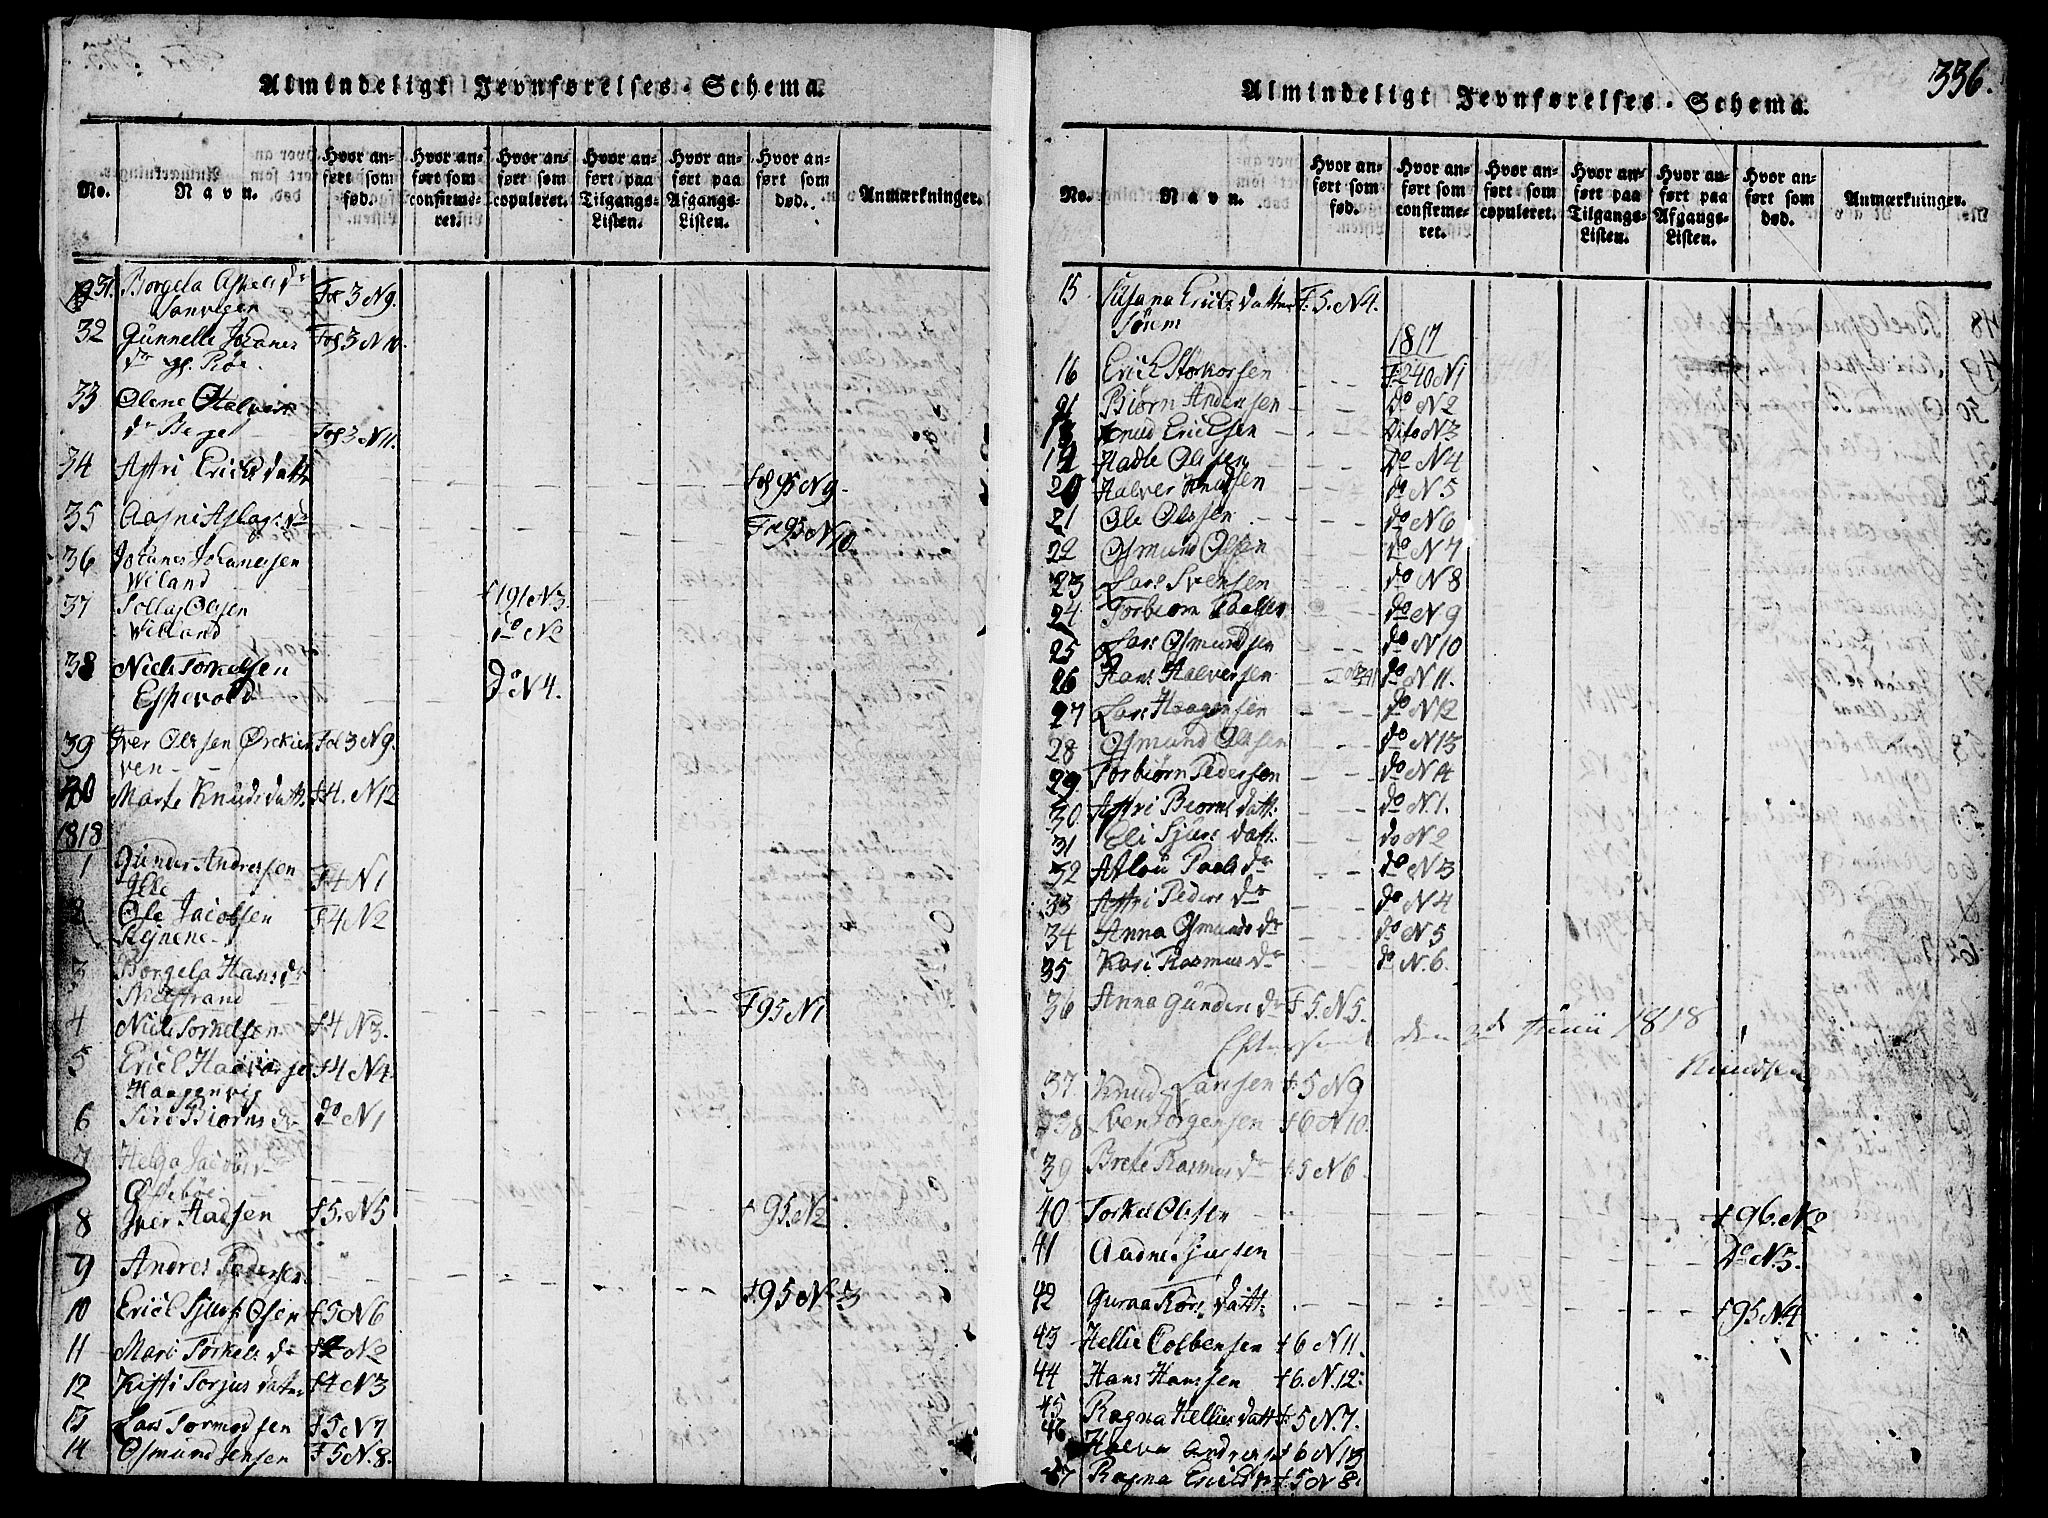 Almindeligt Jevnførelses-Schema.
No.
Navn.
Hvor anført som fød.
Hvor anført som confirmeret.
Hvor anført som copuleret.
Hvor anført paa Tilgangs-Listen.
Hvor anført paa Afgangs-Listen.
Hvor anført som død.
Anmærkninger.
31. Borgela Aslaks dr Fol 3 N 9.
32 Gunnelle Johanes Fol 3 N 10.
dr gl. Røe.
33 Olene Halvors
dr Berge Fol 3 N 11.
34 Astri Erichs datt Fol 95 N 9
35 Aagni Aslags dr Fol 95 N 10
36 Johanes Johanesen
Wiland f 191 N 3
37 Tollag Olsen
Wiland do N 2
38 Niels Torkelsen
Espevold do N 4.
39 Iver Olsen Fol 3 N 9.
ven
40 Marte Knuds datt f 4. N 12
1818
1 Gunder Andersen
F 4 N 1
2 Ole Jacobsen F 4 N 2
3 Borgela Hans dr
Nielstrand F 95 N 1
4 Niels Torkelsen f 4 N 3.
5 Erich f 4 N 4
Haagenvig
6 Siri Biørns dr do N 1
7 Helga Jacobs
Østebøe f 95. N 2
8 Iver Hadsen f 5. N 5
9 Andres Pedersen f 95 N 3
10 Erich Sjurs Øen f 5 N 6
11 Mari Torkels dr f 4 N 2
12 Kisti Torjus datter f 4 N 3
13 Lars Tormodsen f 5 N 7
14 Osmund Jensen F 5 N. 8.
Almindeligt Jevnførelses-Schema.
336.
No.
Navn.
Hvor anført som fød.
Hvor anført som confirmeret.
Hvor anført som copuleret.
Hvor anført paa Tilgangs-Listen.
Hvor anført paa Afgangs-Listen.
Hvor anført som død.
Anmærkninger.
15 Susana Erichs datter F. 5. N 4.
1817
16 Erich Storkorsen F 240 N 1
Biørn Andersen do N 2
Knud Ericksen Dito N 3
Hadle Olsen Do N 4
20 Halver Knudsen do N. 5
21 Ole Olssen do N 6
22 Osmund Olsen do N 7
23 Lars Svensen do N 8
24 Torbiørn do N 9
25 Lars Osmundsen do N 10
26 Hans Halversen do N 11.
27 Lars Haagensen do N 12
28 Osmund Olsen do N 13
29 Torbiørn Pedersen do N 14
30 Astri Biorns datt. do N 1.
31 Eli Sjurs datt do N 2
32 Atlou Paals dr do N 3
33 Astri Peders dr do N 4
34 Anna Osmunds dr do N 5
35 Kari Rasmus dr do N. 6.
36 Anna Gunders dr F 5. N 5.
den 2d Junii 1818
Knudsen
37 Knud Larsen f 5 N 9
38 Sven Torgersen f 6 N 10
39 Brete Rasmus dr f 5 N 6.
40 Torkel Olsen f 96. N 2
41 Aadne Sjursen Do N 3.
42 Guraa Tors datt: f 95 N 4
43 Hellie Colbensen f 6 N 11.
44 Hans Hanssen f 6. N. 12:
45 Ragna Hellies datt f 5 N. 7.
46 Halver Andersen f 6 N 13
47 Ragna Erichs dr f 5 N 8